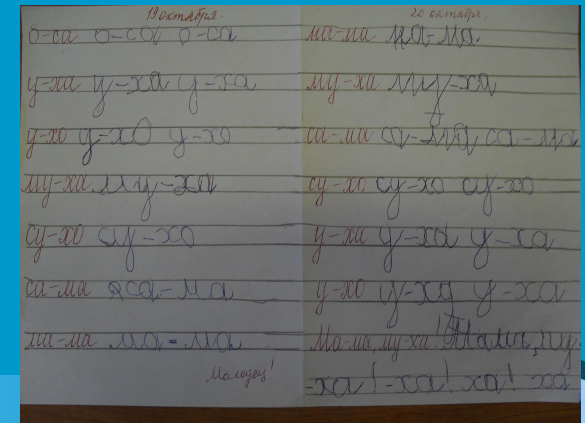 19 октября.
о-са о-са о-са
у-ха у-ха у-ха
у-хо у-хо у-хо
му-ха му-ха
су-хо су-хо
са-ма са-ма
ма-ма ма-ма
Молодец!
20 октября.
ма-ма ма-ма.
му-ха му-ха
са-ма са-ма са-ма
су-хо су-хо су-хо
у-ха у-ха у-ха
у-хо у-ха у-ха
Ма-ма, му-ха! Мама, му-
-ха! -ха! ха! ха